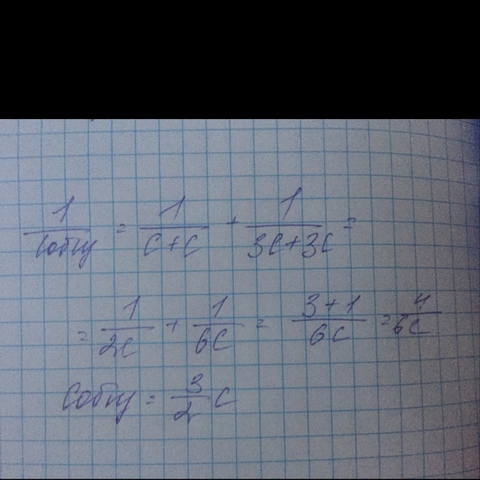 1/Cобщ = 1/(C+C) + 1/(3C+3C) =
= 1/2C + 1/6C = (3+1)/6C = 4/6C
Cобщ = 3/2 C